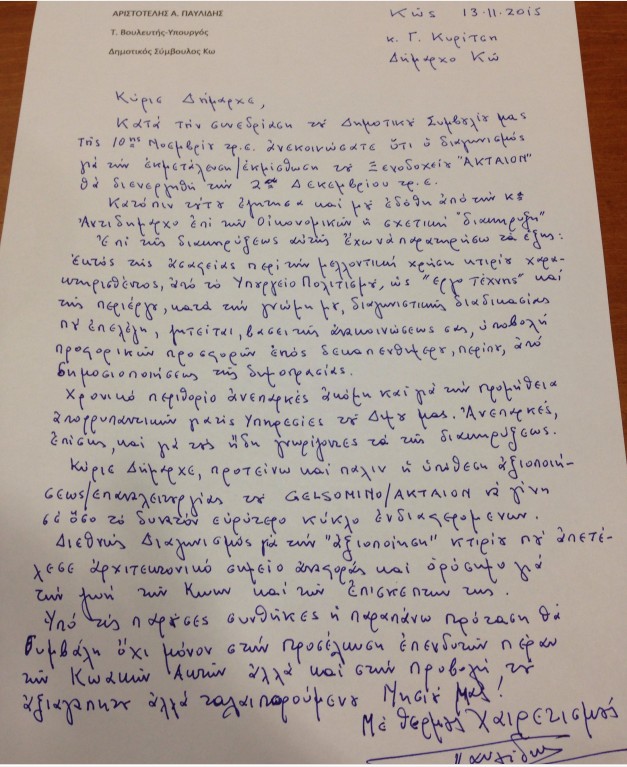 ΑΡΙΣΤΟΤΕΛΗΣ Α. ΠΑΥΛΙΔΗΣ
Τ. Βουλευτής-Υπουργός
Δημοτικός Σύμβουλος Κω
Κώς 13-11-2015
κ. Γ. Κυρίτση
Δήμαρχο Κώ
Κύριε Δήμαρχε,
Κατά τήν συνεδρίαση τȣ Δημοτικȣ Συμβȣλίȣ μας
τῆς 10ης Νοεμβρίȣ τρ.ε. ἀνεκοινώσατε ὅτι ὁ διαγωνισμός
γιά τήν ἐκμετάλευση/ἐκμίσθωση τȣ Ξενοδοχείȣ "ΑΚΤΑΙΟΝ"
θά διενεργηθῆ τήν 2αν Δεκεμβρίου τρ.ε.
Κατόπιν τȣτȣ ἐζήτησα καί μȣ ἐδόθη ἀπό τήν κα
Ἀντιδήμαρχο ἐπί τῶν Οἰκονομικῶν ἡ σχετική "διακήρυξη"
Ἐπί τῆς διακηρύξεως αὐτῆς ἔχω νά παρατηρήσω τά ἑξῆς:
Ἐκτός τῆς ἀσαφείας περί τήν μελλοντική χρήση κτιρίȣ χαρα-
κτηρισθέντος, ἀπό τό Υπȣργείο Πολιτισμȣ, ὡς "ἔργο τέχνης" καί
τῆς περιέργȣ, κατά τήν γνώμη μȣ, διαγωνιστικῆς διαδικασίας
πȣ ἐπελέγη, ζητεῖται, βάσει τῆς ἀνακοινώσεως σας, ὑποβολή
προφορικῶν προσφορῶν ἐντός δεκαπενθημέρȣ, περίπȣ, ἀπό
δημοσιοποιήσεως τῆς δημοπρασίας.
Χρονικό περιθώριο ἀνεπαρκές ἀκόμη καί γιά τήν προμήθεια
ἀπορρυπαντικῶν γιά τίς Υπηρεσίες τȣ Δήμȣ μας. Ἀνεπαρκές,
ἐπίσης, καί γιά τȣς ἤδη γνωρίζοντες τά τῆς διακηρύξεως.
Κύριε Δήμαρχε, προτείνω καί πάλιν ἡ ὑπόθεση ἀξιοποιή-
σεως/επαναλειτȣργίας τȣ GELSOMINO/ΑΚΤΑΙΟΝ νά γίνη
σέ ὅσο τό δυνατόν εὐρύτερο κύκλο ἐνδιαφερομένων.
Διεθνής Διαγωνισμός γιά τήν "ἀξιοποίηση" κτιρίȣ πȣ ἀπετέ-
λεσε ἀρχιτεκτονικό σημεῖο ἀναφορᾶς καί ὁρόσημο γιά
τήν ζωή τῶν Κώων καί τῶν ἐπισκεπτῶν της.
Ὑπό τίς παρȣσες συνθῆκες ἡ παραπάνω πρόταση θά
συμβάλη ὄχι μόνον στήν προσέλκυση ἐπενδυτῶν πέραν
τῶν Κωακῶν Ακτῶν ἀλλά καί στήν προβολή τȣ
ἀξιαγάπητȣ ἀλλά ταλαιπορούμενȣ Νησιȣ μας!
Μέ θερμȣς Χαιρετισμȣς
Παυλίδης